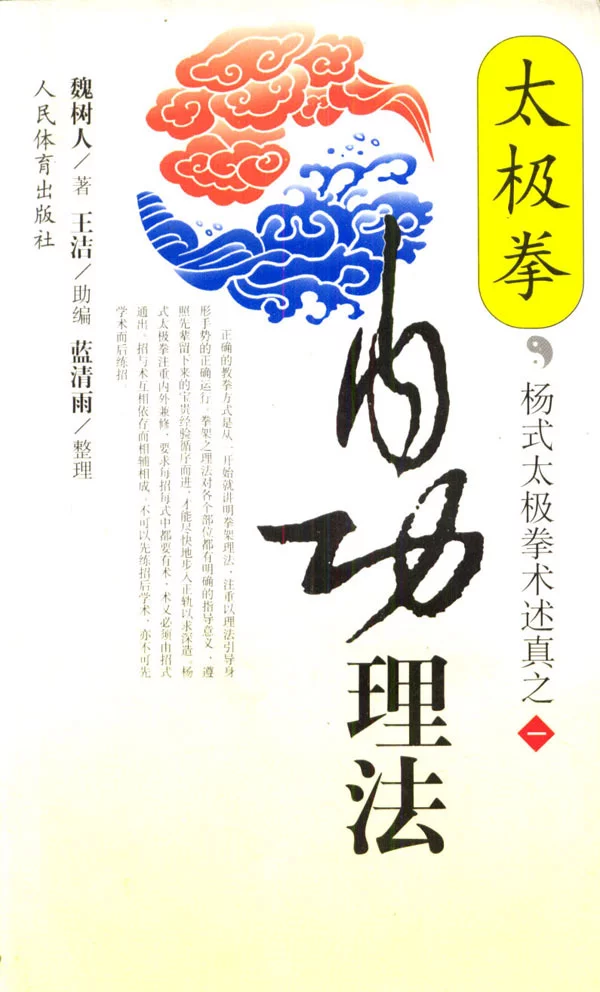 太极拳
杨式太极拳术述真之一
内功
理法
正确的教拳方式是从一开始就讲明拳架理法、注重以理法引导身
形手势的正确运行。拳架之理法对各个部位都有明确的指导意义，遵
照先辈留下来的宝贵经验循序而进，才能尽快地步入正轨以求深造。杨
式太极拳注重内外兼修，要求每招每式中都要有术，术又必须由招式
通出。招与术互相依存而相辅相成，不可以先练招后学术，亦不可先
学术而后练招。
魏树人/著 王洁/助编 蓝清雨/整理
人民体育出版社